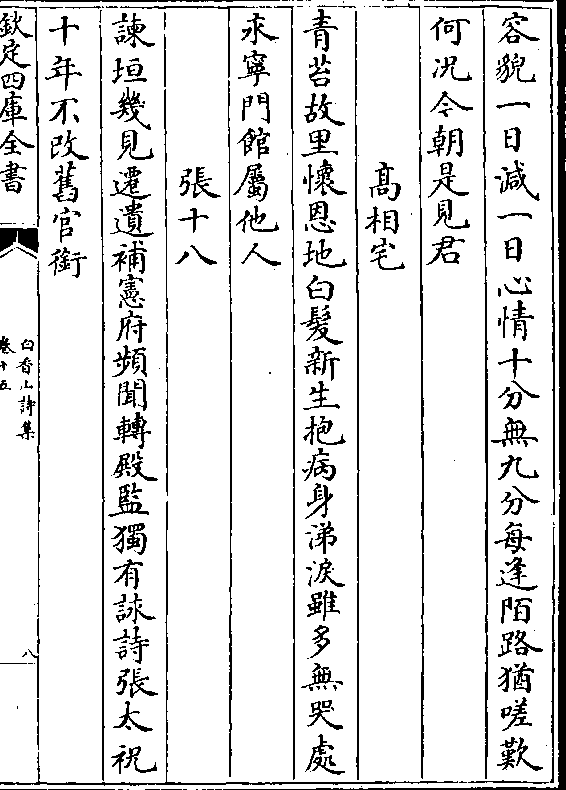 容貌一日減一日心情十分無九分每逢陌路猶嗟歎
何況今朝是見君
高相宅
青苔故里懷恩地白髮新生抱病身涕淚雖多無哭處
永寧門館屬他人
張十八
諫垣幾見遷遺補憲府頻聞轉殿監獨有詠詩張太祝
十年不改舊官銜
欽定四庫全書
白香山詩集
卷十五
八